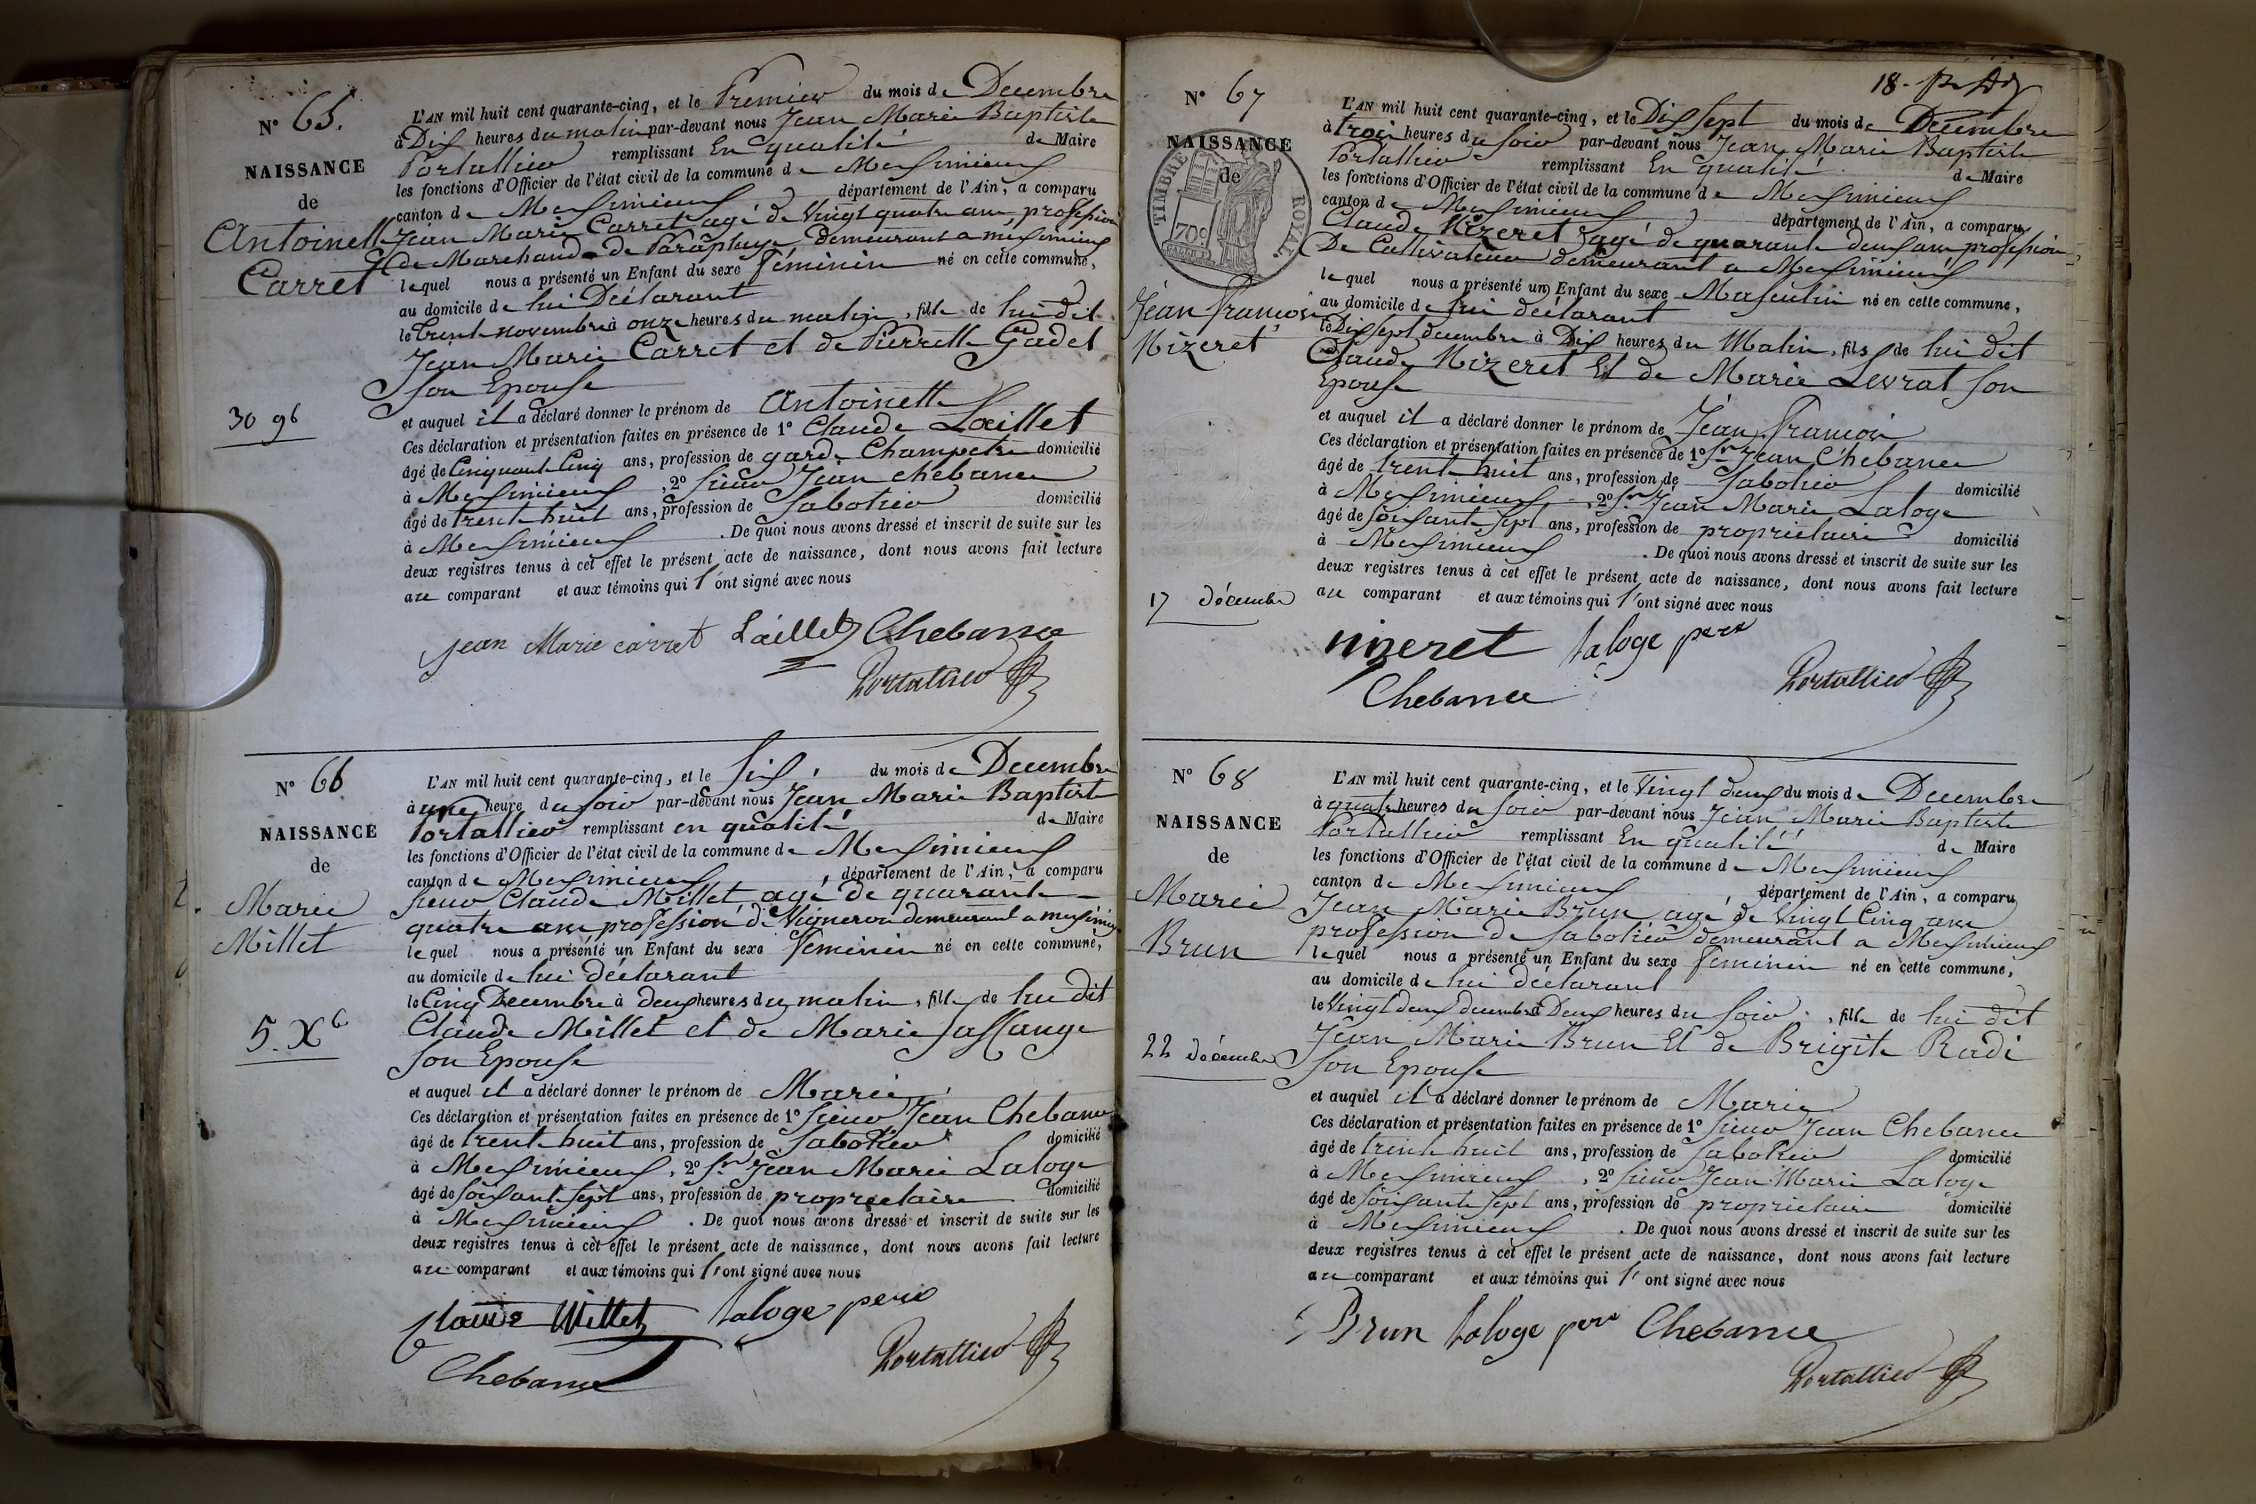 N° 65.
NAISSANCE
de
Antoinette
Carret
30 9b
L'AN mil huit cent quarante-cinq, et le Premier du mois de Decembre
à Dix heures du matin par-devant nous Jean Marie Baptiste
Portallier remplissant En qualité de Maire
les fonctions d'Officier de l'état civil de la commune de Meximieux
canton de Meximieux département de l'Ain, a comparu
Jean Marie Carret agé de Vingt quatre ans, profession
de Marchand de Parapluye demeurant a meximieux
lequel nous a présenté un Enfant du sexe féminin né en cette commune,
au domicile de lui Déclarant
le trente novembre à onze heures du matin, fille de lui dit
Jean Marie Carret et de Pierrette Gadet
Son Epouse
et auquel il a déclaré donner le prénom de Antoinette
Ces déclaration et présentation faites en présence de 1° Claude Laillet
âgé de Cinquante Cinq ans, profession de garde Champetre domicilié
à Meximieux, 2° Sieur Jean Chebance
âgé de trente huit ans, profession de Sabotier domicilié
à Meximieux. De quoi nous avons dressé et inscrit de suite sur les
deux registres tenus à cet effet le présent acte de naissance, dont nous avons fait lecture
au comparant et aux témoins qui l'ont signé avec nous
jean Marie carret Laillet Chebance
Portallier
N° 66
NAISSANCE
de
Marie
Millet
5. Xb
L'AN mil huit cent quarante-cinq, et le Six du mois de Decembre
à une heure du soir par-devant nous Jean Marie Baptiste
Portallier remplissant en qualité de Maire
les fonctions d'Officier de l'état civil de la commune de Meximieux
canton de Meximieux, département de l'Ain, a comparu
Sieur Claude Millet agé de quarante
quatre ans profession de Vigneron demeurant a meximieux
lequel nous a présenté un Enfant du sexe féminin né en cette commune,
au domicile de lui déclarant
le Cinq Decembre à deux heures du matin, fille de lui dit
Claude Millet et de Marie Jassange
Son Epouse
et auquel il a déclaré donner le prénom de Marie
Ces déclaration et présentation faites en présence de 1° Sieur Jean Chebance
âgé de trente huit ans, profession de Sabotier domicilié
à Meximieux, 2° Sr Jean Marie Laloge
âgé de Soixante Sept ans, profession de proprietaire domicilié
à Meximieux. De quoi nous avons dressé et inscrit de suite sur les
deux registres tenus à cet effet le présent acte de naissance, dont nous avons fait lecture
au comparant et aux témoins qui l'ont signé avec nous
Claude Millet laloge pere
Chebance Portallier
18.
N° 67
NAISSANCE
de
TIMBRE ROYAL.
70c
Jean François
Nizeret
17 décembre
L'AN mil huit cent quarante-cinq, et le Dix Sept du mois de Décembre
à trois heures du Soir par-devant nous Jean Marie Baptiste
Portallier remplissant En qualité de Maire
les fonctions d'Officier de l'état civil de la commune de Meximieux
canton de Meximieux, département de l'Ain, a comparu
Claude Nizeret agé de quarante deux ans profession
De Cultivateur demeurant a Meximieux
lequel nous a présenté un Enfant du sexe Masculin né en cette commune,
au domicile de lui déclarant
le Dix Sept decembre à Dix heures du Matin, fils de lui dit
Claude Nizeret Et de Marie Levrat Son
Epouse
et auquel il a déclaré donner le prénom de Jean François
Ces déclaration et présentation faites en présence de 1° Sr Jean Chebance
âgé de trente huit ans, profession de Sabotier domicilié
à Meximieux, 2° Sr Jean Marie Laloge
âgé de Soixante Sept ans, profession de proprietaire domicilié
à Meximieux. De quoi nous avons dressé et inscrit de suite sur les
deux registres tenus à cet effet le présent acte de naissance, dont nous avons fait lecture
au comparant et aux témoins qui l'ont signé avec nous
nizeret laloge pere
Chebance Portallier
N° 68
NAISSANCE
de
Marie
Brun
22 décembre
L'AN mil huit cent quarante-cinq, et le Vingt deux du mois de Decembre
à quatre heures du Soir par-devant nous Jean Marie Baptiste
Portallier remplissant En qualité de Maire
les fonctions d'Officier de l'état civil de la commune de Meximieux
canton de Meximieux, département de l'Ain, a comparu
Jean Marie Brun agé de Vingt Cinq ans
profession de Sabotier demeurant a Meximieux
lequel nous a présenté un Enfant du sexe féminin né en cette commune,
au domicile de lui déclarant
le Vingt deux decembre à Deux heures du Soir, fille de lui dit
Jean Marie Brun Et de Brigite Radi
Son Epouse
et auquel il a déclaré donner le prénom de Marie
Ces déclaration et présentation faites en présence de 1° Sieur Jean Chebance
âgé de trente huit ans, profession de Sabotier domicilié
à Meximieux, 2° Sieur Jean Marie Laloge
âgé de Soixante Sept ans, profession de proprietaire domicilié
à Meximieux. De quoi nous avons dressé et inscrit de suite sur les
deux registres tenus à cet effet le présent acte de naissance, dont nous avons fait lecture
au comparant et aux témoins qui l'ont signé avec nous
Brun laloge pere Chebance
Portallier